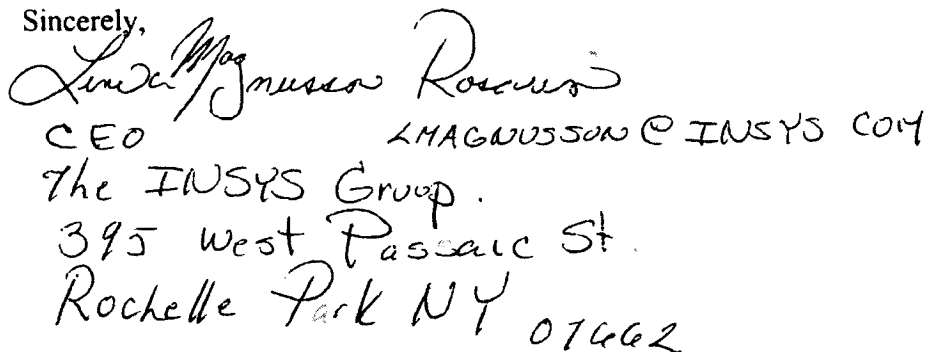 Sincerely,
Linda Magnusson
CEO LMAGNUSSON@INSYS COM
The INSYS Group.
395 West Passaic St.
Rochelle Park NY 07662